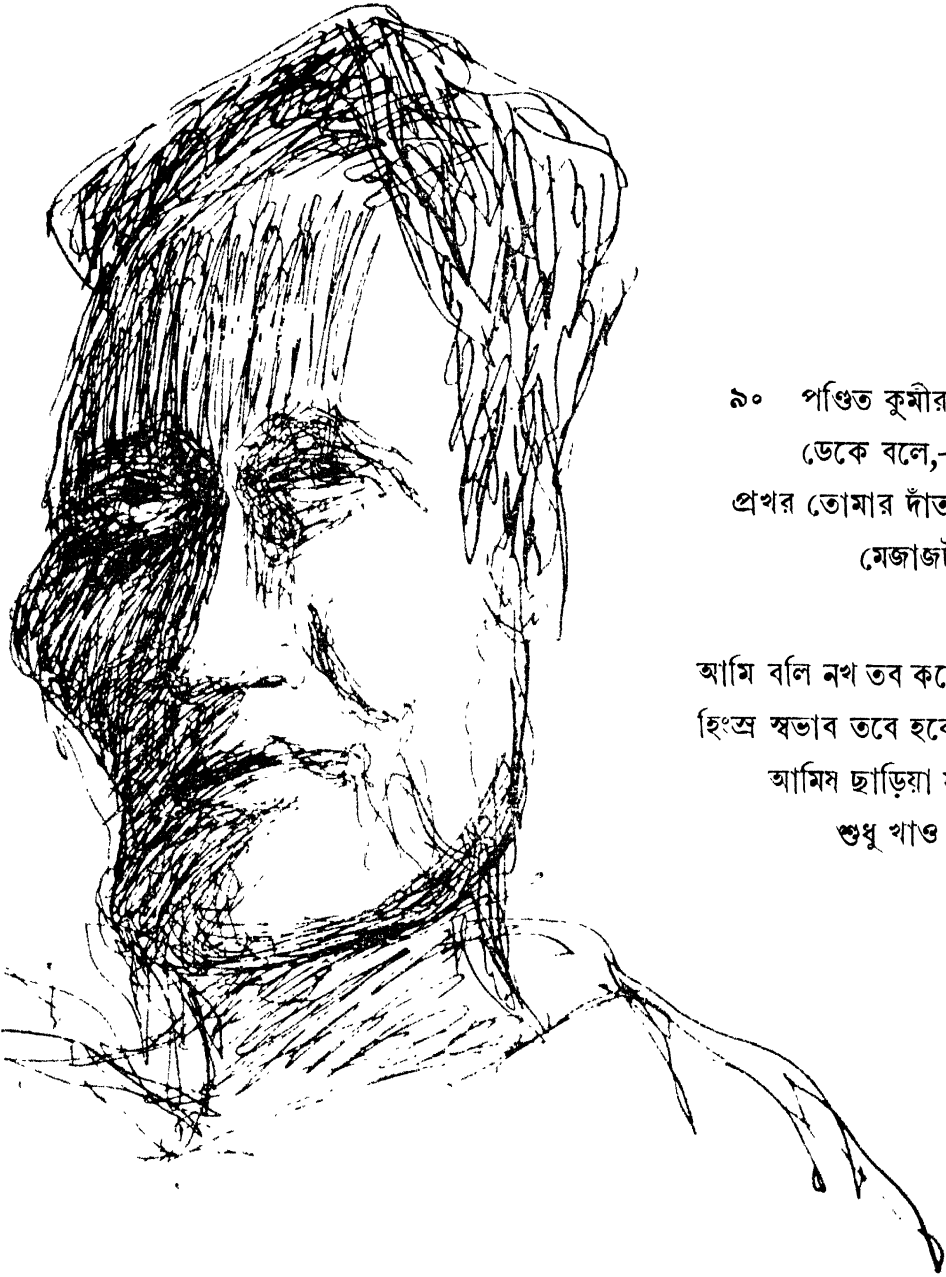 ৯০ পণ্ডিত কুমীর
ডেকে বলে,-
প্রখর তোমার দাঁত
মেজাজ
আমি বলি নখ তব
হিংস্র স্বভাব তবে
আমিষ ছাড়িয়া
শুধু খাও